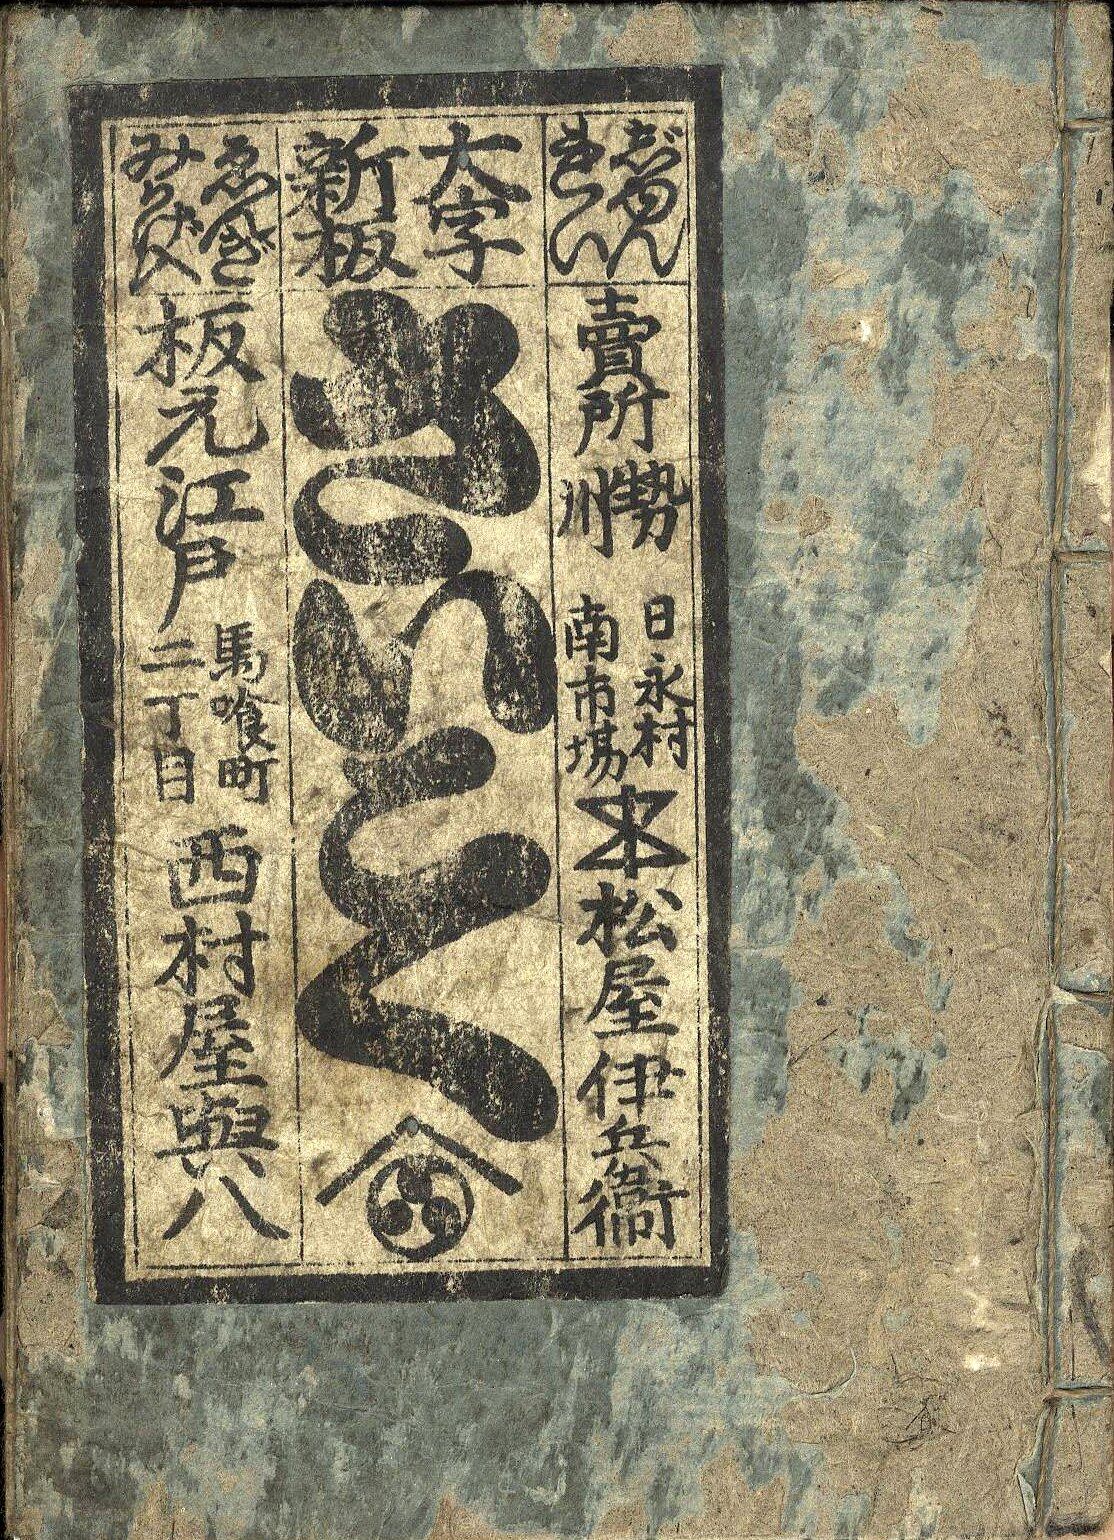 じゆん
れい
賣所
勢
州
日永村
南市場
松屋伊兵衛
大字
新板
さいこく
ゑんぎ
板元江戸
馬喰町
二丁目
西村屋與八